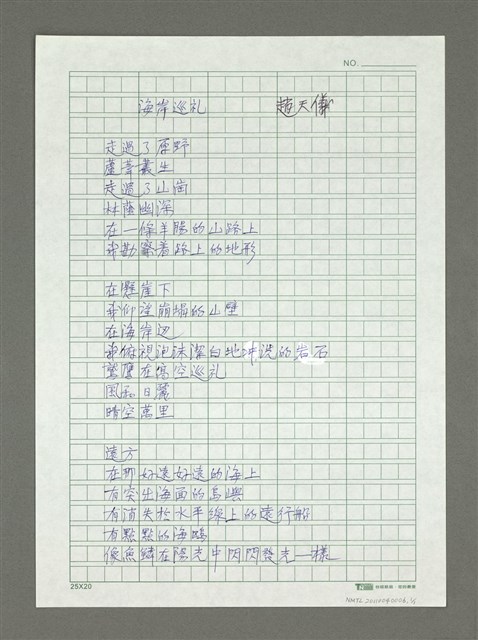 NO.
海岸巡礼 趙天儀
走過了原野
蘆葦叢生
走過了山崗
林蔭幽深
在一條羊腸的山路上
我勘察着路上的地形
在懸崖下
我仰望崩塌的山壁
在海岸辺
我俯視泡沫潔白地冲洗的岩石
鷲鷹在高空巡礼
風和日麗
晴空萬里
遠方
在那好遠好遠的海上
有突出海面的島嶼
有消失於水平線上的遠行船
有點點的海鷗
像魚鱗在陽光中閃閃發光一樣
25X20